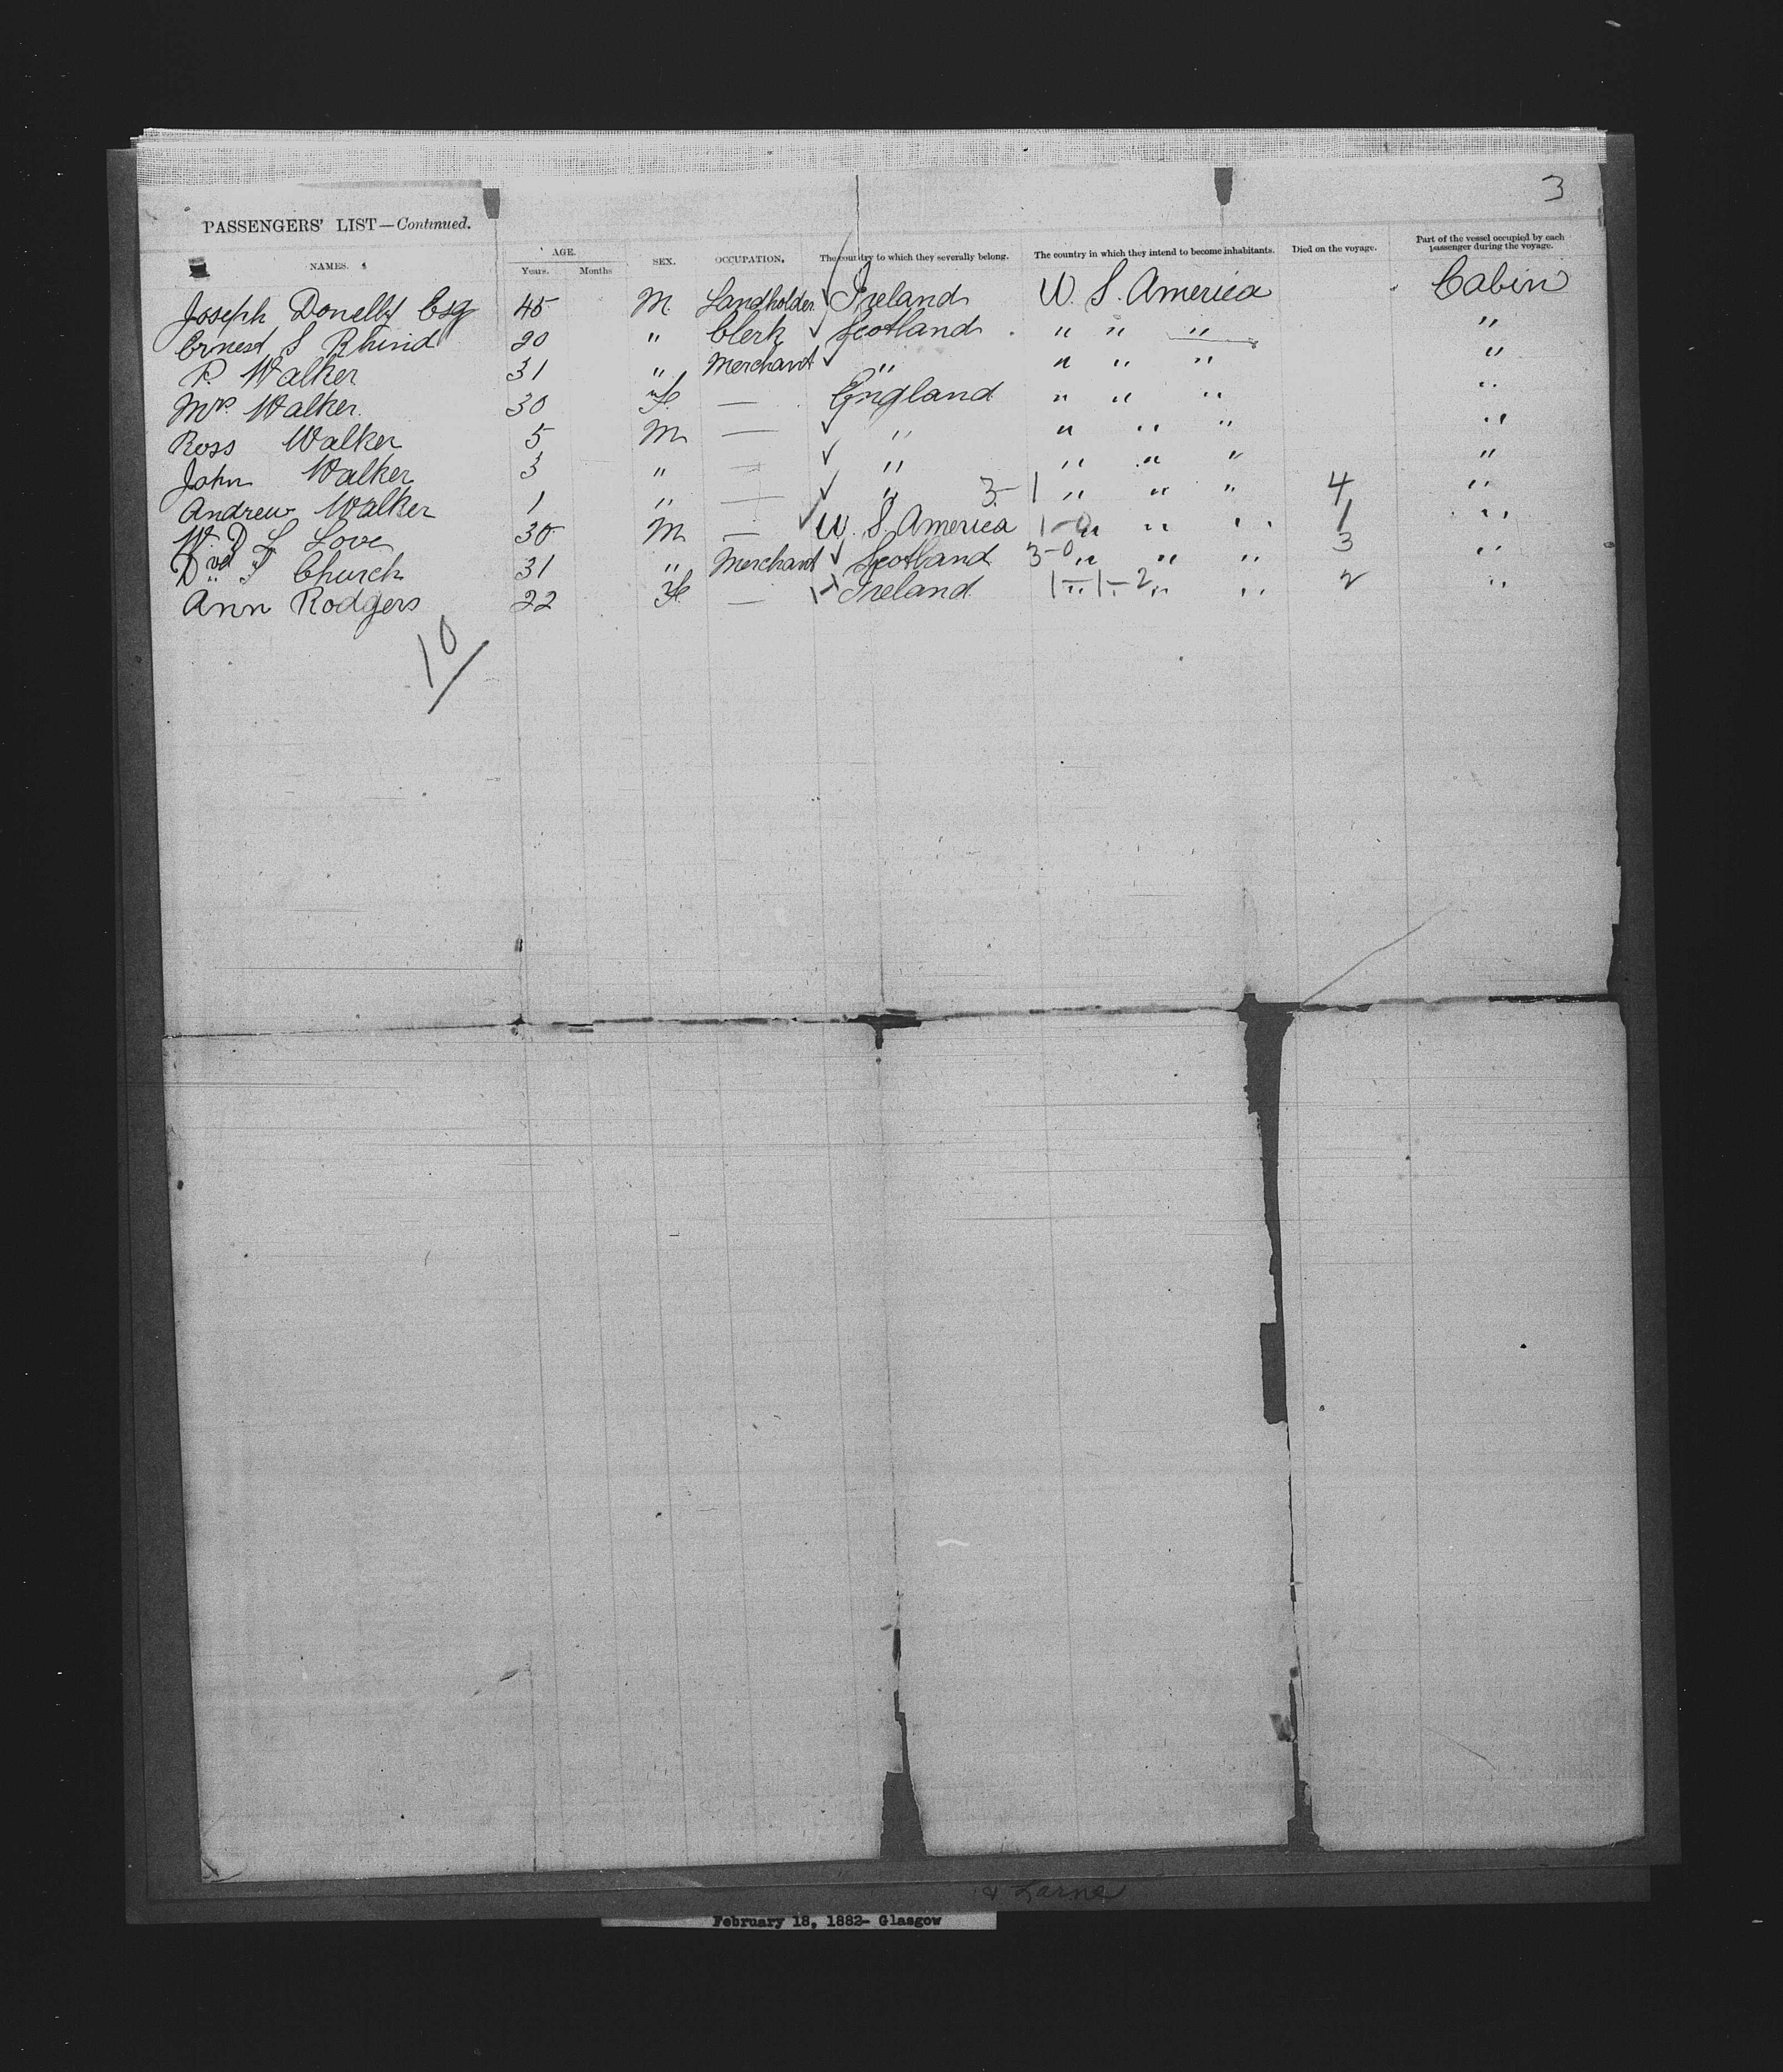 3
PASSENGERS' LIST—Continued.
NAMES. AGE. Years. Months SEX. OCCUPATION. The country to which they severally belong. The country in which they intend to become inhabitants. Died on the voyage. Part of the vessel occupied by each passenger during the voyage.
Joseph Donelly Esq 45 M. Landholder Ireland U. S. America Cabin
Ernest S Rhind 20 " Clerk Scotland " " " "
P. Walker 31 " Merchant " " " " "
Mrs Walker 30 Fe — England " " " "
Ross Walker 5 M — " " " " "
John Walker 3 " — " " " " "
Andrew Walker 1 " — " 3-1 " " " 4 "
W. D L Love 30 M — U. S. America 1-0 " " " 1 "
Dvd S Church 31 " Merchant Scotland 3-0 " " " 3 "
Ann Rodgers 22 Fe — Ireland 1-1-2 " " 2 "
10
& Larne
February 18, 1882- Glasgow